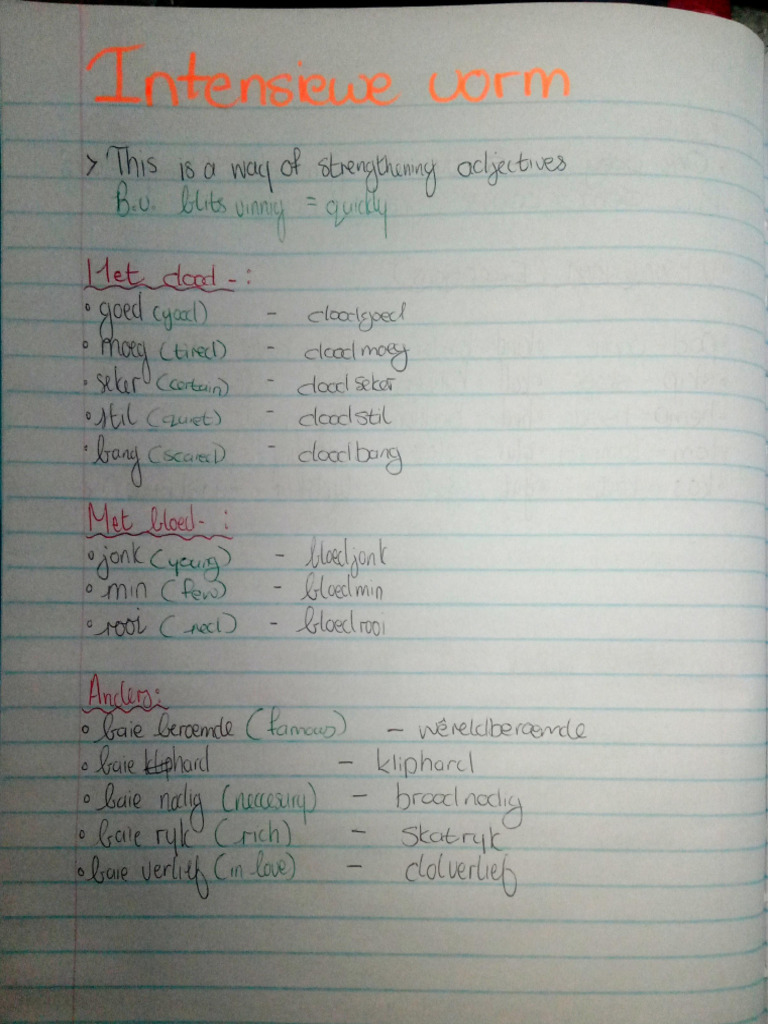 Intensiewe vorm
> This is a way of strengthening adjectives
B.v. blits vinnig = quickly
Met dood -:
• goed (good) - doodgoed
• moeg (tired) - doodmoeg
• seker (certain) - doodseker
• stil (quiet) - doodstil
• bang (scared) - doodbang
Met bloed- :
• jonk (young) - bloedjonk
• min (few) - bloedmin
• rooi (red) - bloedrooi
Anders:
• baie beroemde (famous) - wêreldberoemde
• baie hard - kliphard
• baie nodig (neccesury) - broodnodig
• baie ryk (rich) - skatryk
• baie verlief (in love) - dolverlief